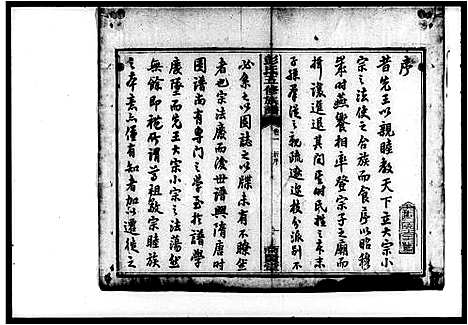 序
昔先王以親睦教天下立大宗小
宗之法使之合族而食序以昭穆
歲時燕饗相率登宗子之廟而
揖讓進退其間當時民族之來
子孫雖後之親疏遠近枝分派別不
彭氏五修族譜
卷一
必集之以圖誌之以牒未有不瞭然
者也宗法廢而後世譜興隋唐時
圖譜尚有專門之學至於譜學
廢墜而先王大宗小宗之法蕩然
無餘即禮所謂尊祖敬宗睦族
之本意亦僅有知者加以遷徙之